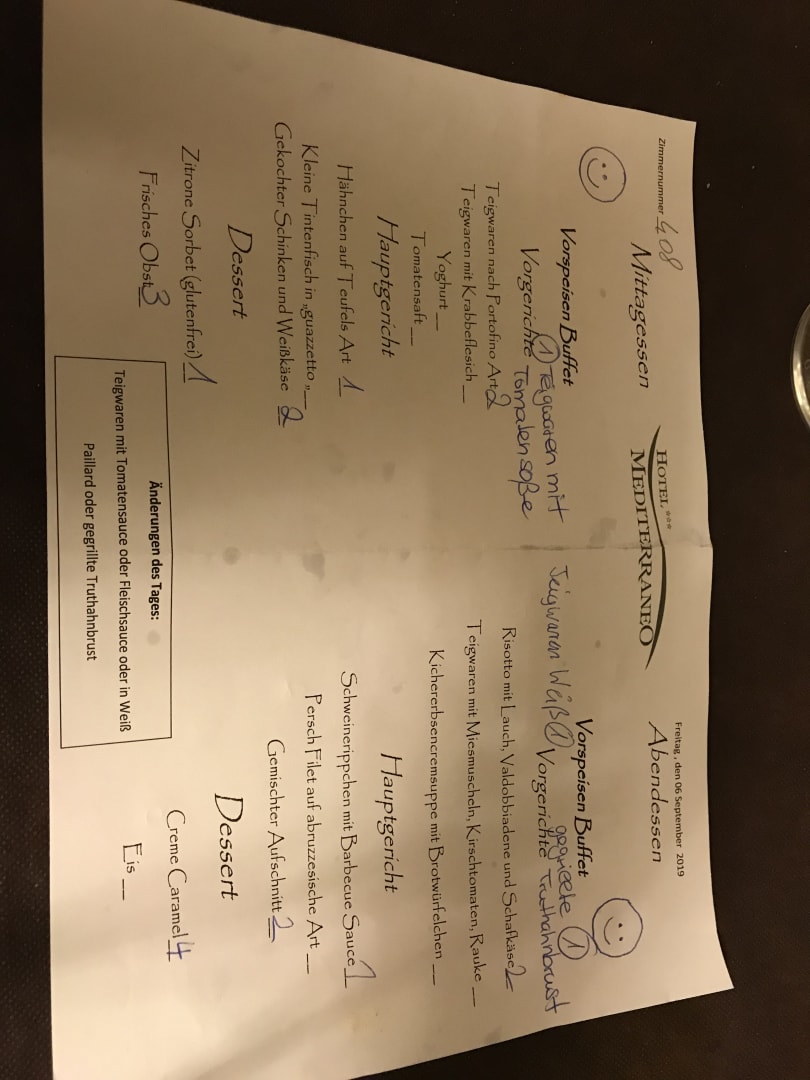 Zimmernummer 408
HOTEL ***
MEDITERRANEO
Freitag , den 06 September 2019
Mittagessen
Vorspeisen Buffet
① Teigwaren mit
Vorgerichte Tomatensoße
Teigwaren nach Portofino Art 2
Teigwaren mit Krabbeflesich __
Yoghurt __
Tomatensaft __
Hauptgericht
Hähnchen auf Teufels Art 1
Kleine Tintenfisch in „guazzetto „__
Gekochter Schinken und Weißkäse 2
Dessert
Zitrone Sorbet (glutenfrei) 1
Frisches Obst 3
Abendessen
Vorspeisen Buffet
Teigwaren Weiß ① Vorgerichte
gegrillte ①
Truthahnbrust
Risotto mit Lauch, Valdobbiadene und Schafkäse 2
Teigwaren mit Miesmuscheln, Kirschtomaten, Rauke __
Kichererbsencremsuppe mit Brotwürfelchen __
Hauptgericht
Schweinerippchen mit Barbecue Sauce 1
Persch Filet auf abruzzesische Art __
Gemischter Aufschnitt 2
Dessert
Creme Caramel 4
Eis __
Änderungen des Tages:
Teigwaren mit Tomatensauce oder Fleischsauce oder in Weiß
Paillard oder gegrillte Truthahnbrust